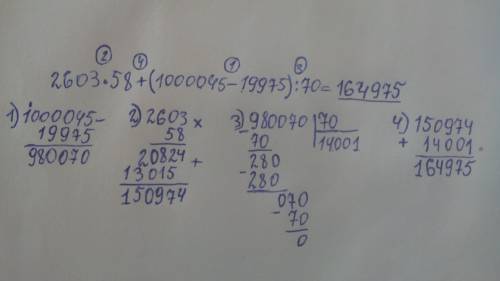 ② ④ ① ③
2603·58+(1000045-19975):70=164975
1) 1000045- 2) 2603 × 3) 980070 70 4) 150974
19975 58 70 14001 + 14001
980070 20824 + 280 164975
13015 - 280
150974 070
- 70
0